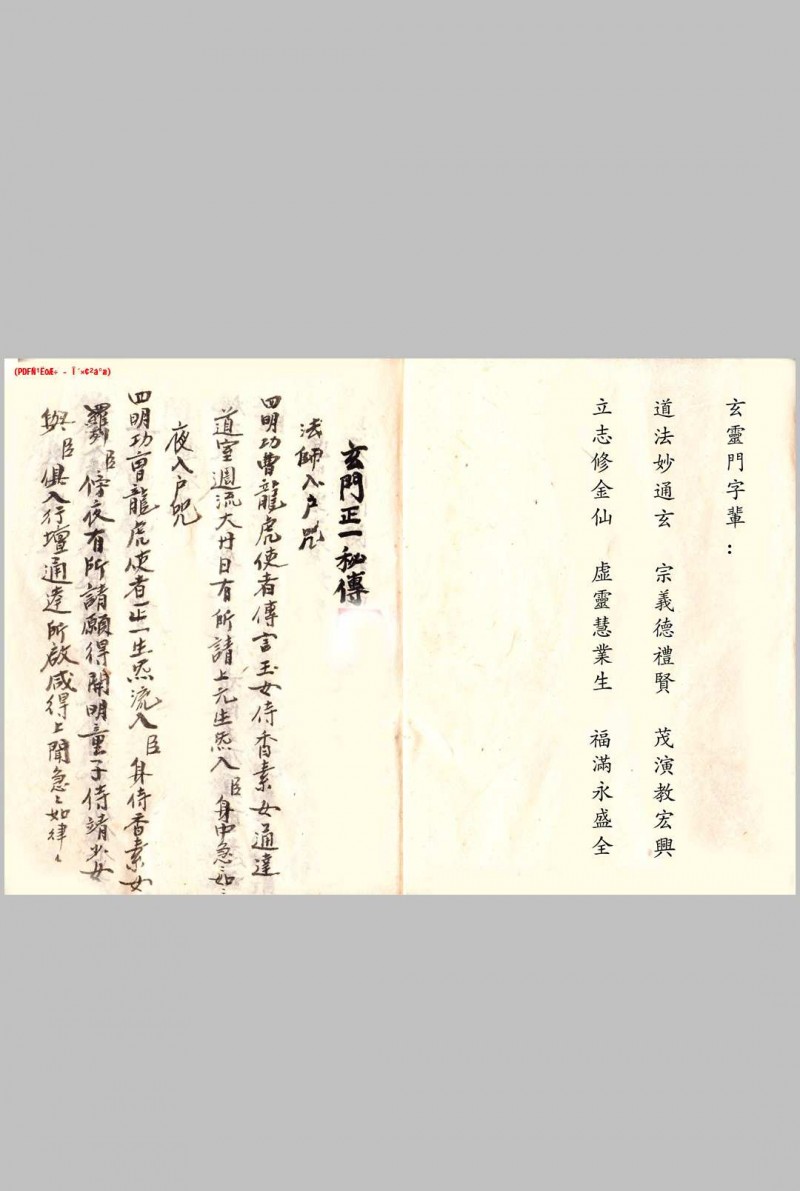 玄靈門字輩：
道法妙通玄　宗義德禮賢　茂演教宏興
立志修金仙　虛靈慧業生　福滿永盛全
玄門正一秘傳
法師入户咒
四明功曹龍虎使者傳言玉女侍香素女通達
道室週流大廿日有所請上元生炁入臣身中急如〻
夜入户咒
四明功曹龍虎使者正一生炁流入臣身侍香素女
羅列臣傍夜有所請願得開明童子侍靖少女
與臣俱入行壇通達所啟咸得上聞急〻如律〻
(PDFÑ¹ËõÆ÷ - Î´×¢²á°æ)